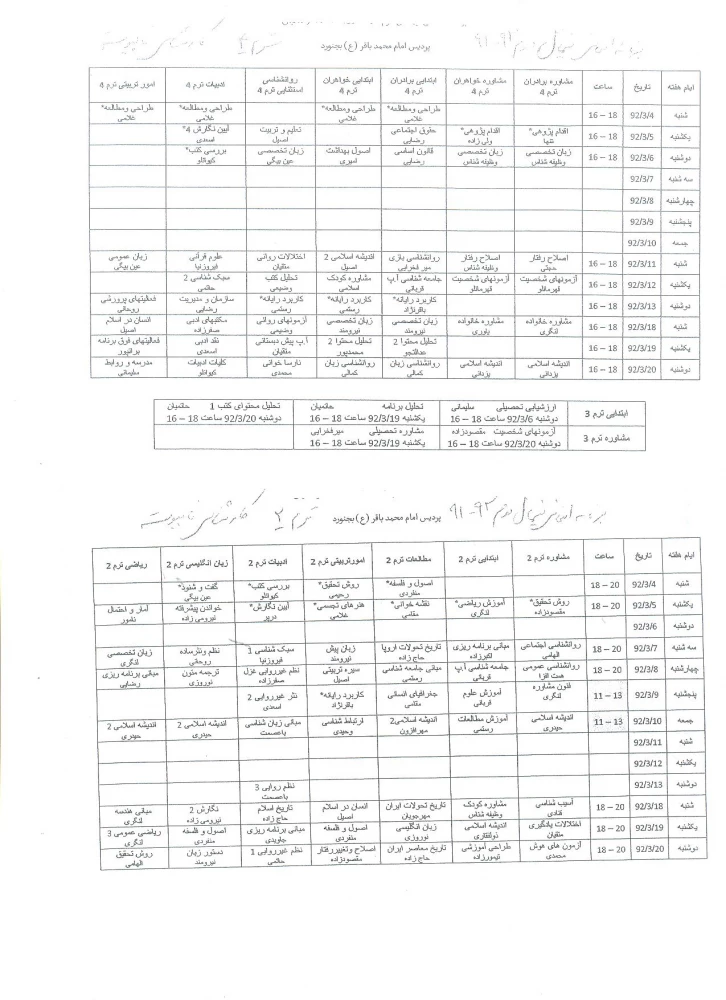 پردیس امام محمد باقر (ع) بجنورد
ایام هفته تاریخ ساعت مشاوره برادران ترم 4 مشاوره خواهران ترم 4 ابتدایی برادران ترم 4 ابتدایی خواهران ترم 4 روانشناسی استثنایی ترم 4 ادبیات ترم 4 امور تربیتی ترم 4
شنبه 92/3/4 16 – 18 طراحی ومطالعه* طراحی ومطالعه* طراحی ومطالعه* طراحی ومطالعه*
غلامی غلامی غلامی غلامی
یکشنبه 92/3/5 16 – 18 اقدام پژوهی* اقدام پژوهی* حقوق اجتماعی تعلیم و تربیت آیین نگارش 4*
تنها ولی زاده رضایی اصیل اسعدی
دوشنبه 92/3/6 16 – 18 زبان تخصصی زبان تخصصی قانون اساسی اصول بهداشت زبان تخصصی بررسی کتب*
وظیفه شناس وظیفه شناس رضایی امیری عین بیگی کیوانلو
سه شنبه 92/3/7
چهارشنبه 92/3/8
پنجشنبه 92/3/9
جمعه 92/3/10
شنبه 92/3/11 16 – 18 اصلاح رفتار اصلاح رفتار روانشناسی بازی اندیشه اسلامی 2 اختلالات روانی علوم قرآنی زبان عمومی
حبیبی وظیفه شناس میر فخرایی اصیل متقیان فیروزنیا عین بیگی
یکشنبه 92/3/12 16 – 18 آزمونهای شخصیت آزمونهای شخصیت جامعه شناسی آ.پ مشاوره کودک تحلیل کتب سبک شناسی 2 فعالیتهای پرورشی
قهرمانلو قهرمانلو قربانی اسلامی وضیعی حاتمی روحانی
دوشنبه 92/3/13 16 – 18 کاربرد رایانه* کاربرد رایانه* کاربرد رایانه* سازمان و مدیریت انسان در اسلام
باقرنژاد رستمی رستمی رضایی اصیل
شنبه 92/3/18 16 – 18 مشاوره خانواده مشاوره خانواده زبان تخصصی زبان تخصصی آزمونهای روانی مکتبهای ادبی
لنگری یاوری نیرومند نیرومند وضیعی صفارزاده
یکشنبه 92/3/19 16 – 18 تحلیل محتوا 2 تحلیل محتوا 2 آ.پ پیش دبستانی نقد ادبی فعالیتهای فوق برنامه
عدالتجو محمدپور متقیان اسعدی براتپور
دوشنبه 92/3/20 16 – 18 اندیشه اسلامی اندیشه اسلامی روانشناسی زبان روانشناسی زبان نارسا خوانی کلیات ادبیات مدرسه و روابط
یزدانی یزدانی کمالی کمالی محمدی کیوانلو سلیمانی
ابتدایی ترم 3 ارزشیابی تحصیلی سلیمانی تحلیل برنامه حاتمیان تحلیل محتوای کتب 1 حاتمیان
دوشنبه 92/3/6 ساعت 18 – 16 یکشنبه 92/3/19 ساعت 18 – 16 دوشنبه 92/3/20 ساعت 18 – 16
مشاوره ترم 3 آزمونهای شخصیت مقصودزاده مشاوره تحصیلی میرفخرایی
دوشنبه 92/3/20 ساعت 18 – 16 یکشنبه 92/3/19 ساعت 18 – 16
پردیس امام محمد باقر (ع) بجنورد
ایام هفته تاریخ ساعت مشاوره 2 ابتدایی ترم 2 مطالعات ترم 2 امورتربیتی ترم 2 ادبیات ترم 2 زبان انگلیسی ترم 2 ریاضی ترم 2
شنبه 92/3/4 18 – 20 اصول و فلسفه* روش تحقیق* بررسی کتب* گفت و شنود*
منفردی رحیمی کیوانلو عین بیگی
یکشنبه 92/3/5 18 – 20 روش تحقیق* آموزش ریاضی* نقشه خوانی* هنرهای تجسمی* آیین نگارش* خواندن پیشرفته آمار و احتمال
مقصودزاده لنگری مقامی غلامی نیرومی زاده
دوشنبه 92/3/6
سه شنبه 92/3/7 18 – 20 روانشناسی اجتماعی مبانی برنامه ریزی تاریخ تحولات اروپا زبان پیش سبک شناسی 1 نظم ونثرساده زبان تخصصی
الهامی اکبرزاده حاج زاده نیرومند فیروزنیا روحانی لنگری
چهارشنبه 92/3/8 18 – 20 روانشناسی عمومی جامعه شناسی آ.پ مبانی جامعه شناسی سیره تربیتی نظم غیرروایی غزل ترجمه متون مبانی برنامه ریزی
همت افزا قربانی رستمی اصیل صفرزاده نوروزی رضایی
پنجشنبه 92/3/9 11 – 13 فنون مشاوره آموزش علوم جغرافیای انسانی کاربرد رایانه* نثر غیرروایی 2
لنگری قربانی مقامی باقرنژاد اسعدی
جمعه 92/3/10 11 – 13 اندیشه اسلامی آموزش مطالعات اندیشه اسلامی2 ارتباط شناسی مبانی زبان شناسی اندیشه اسلامی 2 اندیشه اسلامی 2
حیدری رستمی مهرافزون وحیدی باعصمت حیدری حیدری
شنبه 92/3/11
یکشنبه 92/3/12
دوشنبه 92/3/13 نظم روایی 3
باعصمت
شنبه 92/3/18 18 – 20 آسیب شناسی مشاوره کودک تاریخ تحولات ایران انسان در اسلام تاریخ اسلام نگارش 2 مبانی هندسه
قنادی وظیفه شناس مهرجویان اصیل حاج زاده نیرومی زاده لنگری
یکشنبه 92/3/19 18 – 20 اختلالات یادگیری اندیشه اسلامی زبان انگلیسی اصول و فلسفه مبانی برنامه ریزی اصول و فلسفه ریاضی عمومی 3
متقیان ذوالفقاری نوروزی منفردی جاویدی منفردی لنگری
دوشنبه 92/3/20 18 – 20 آزمون های هوش طراحی آموزشی تاریخ معاصر ایران اصلاح وتغییررفتار نظم غیرروایی 1 دستور زبان روش تحقیق
محمدی تیمورزاده حاج زاده مقصودزاده حاتمی نیرومند الهامی